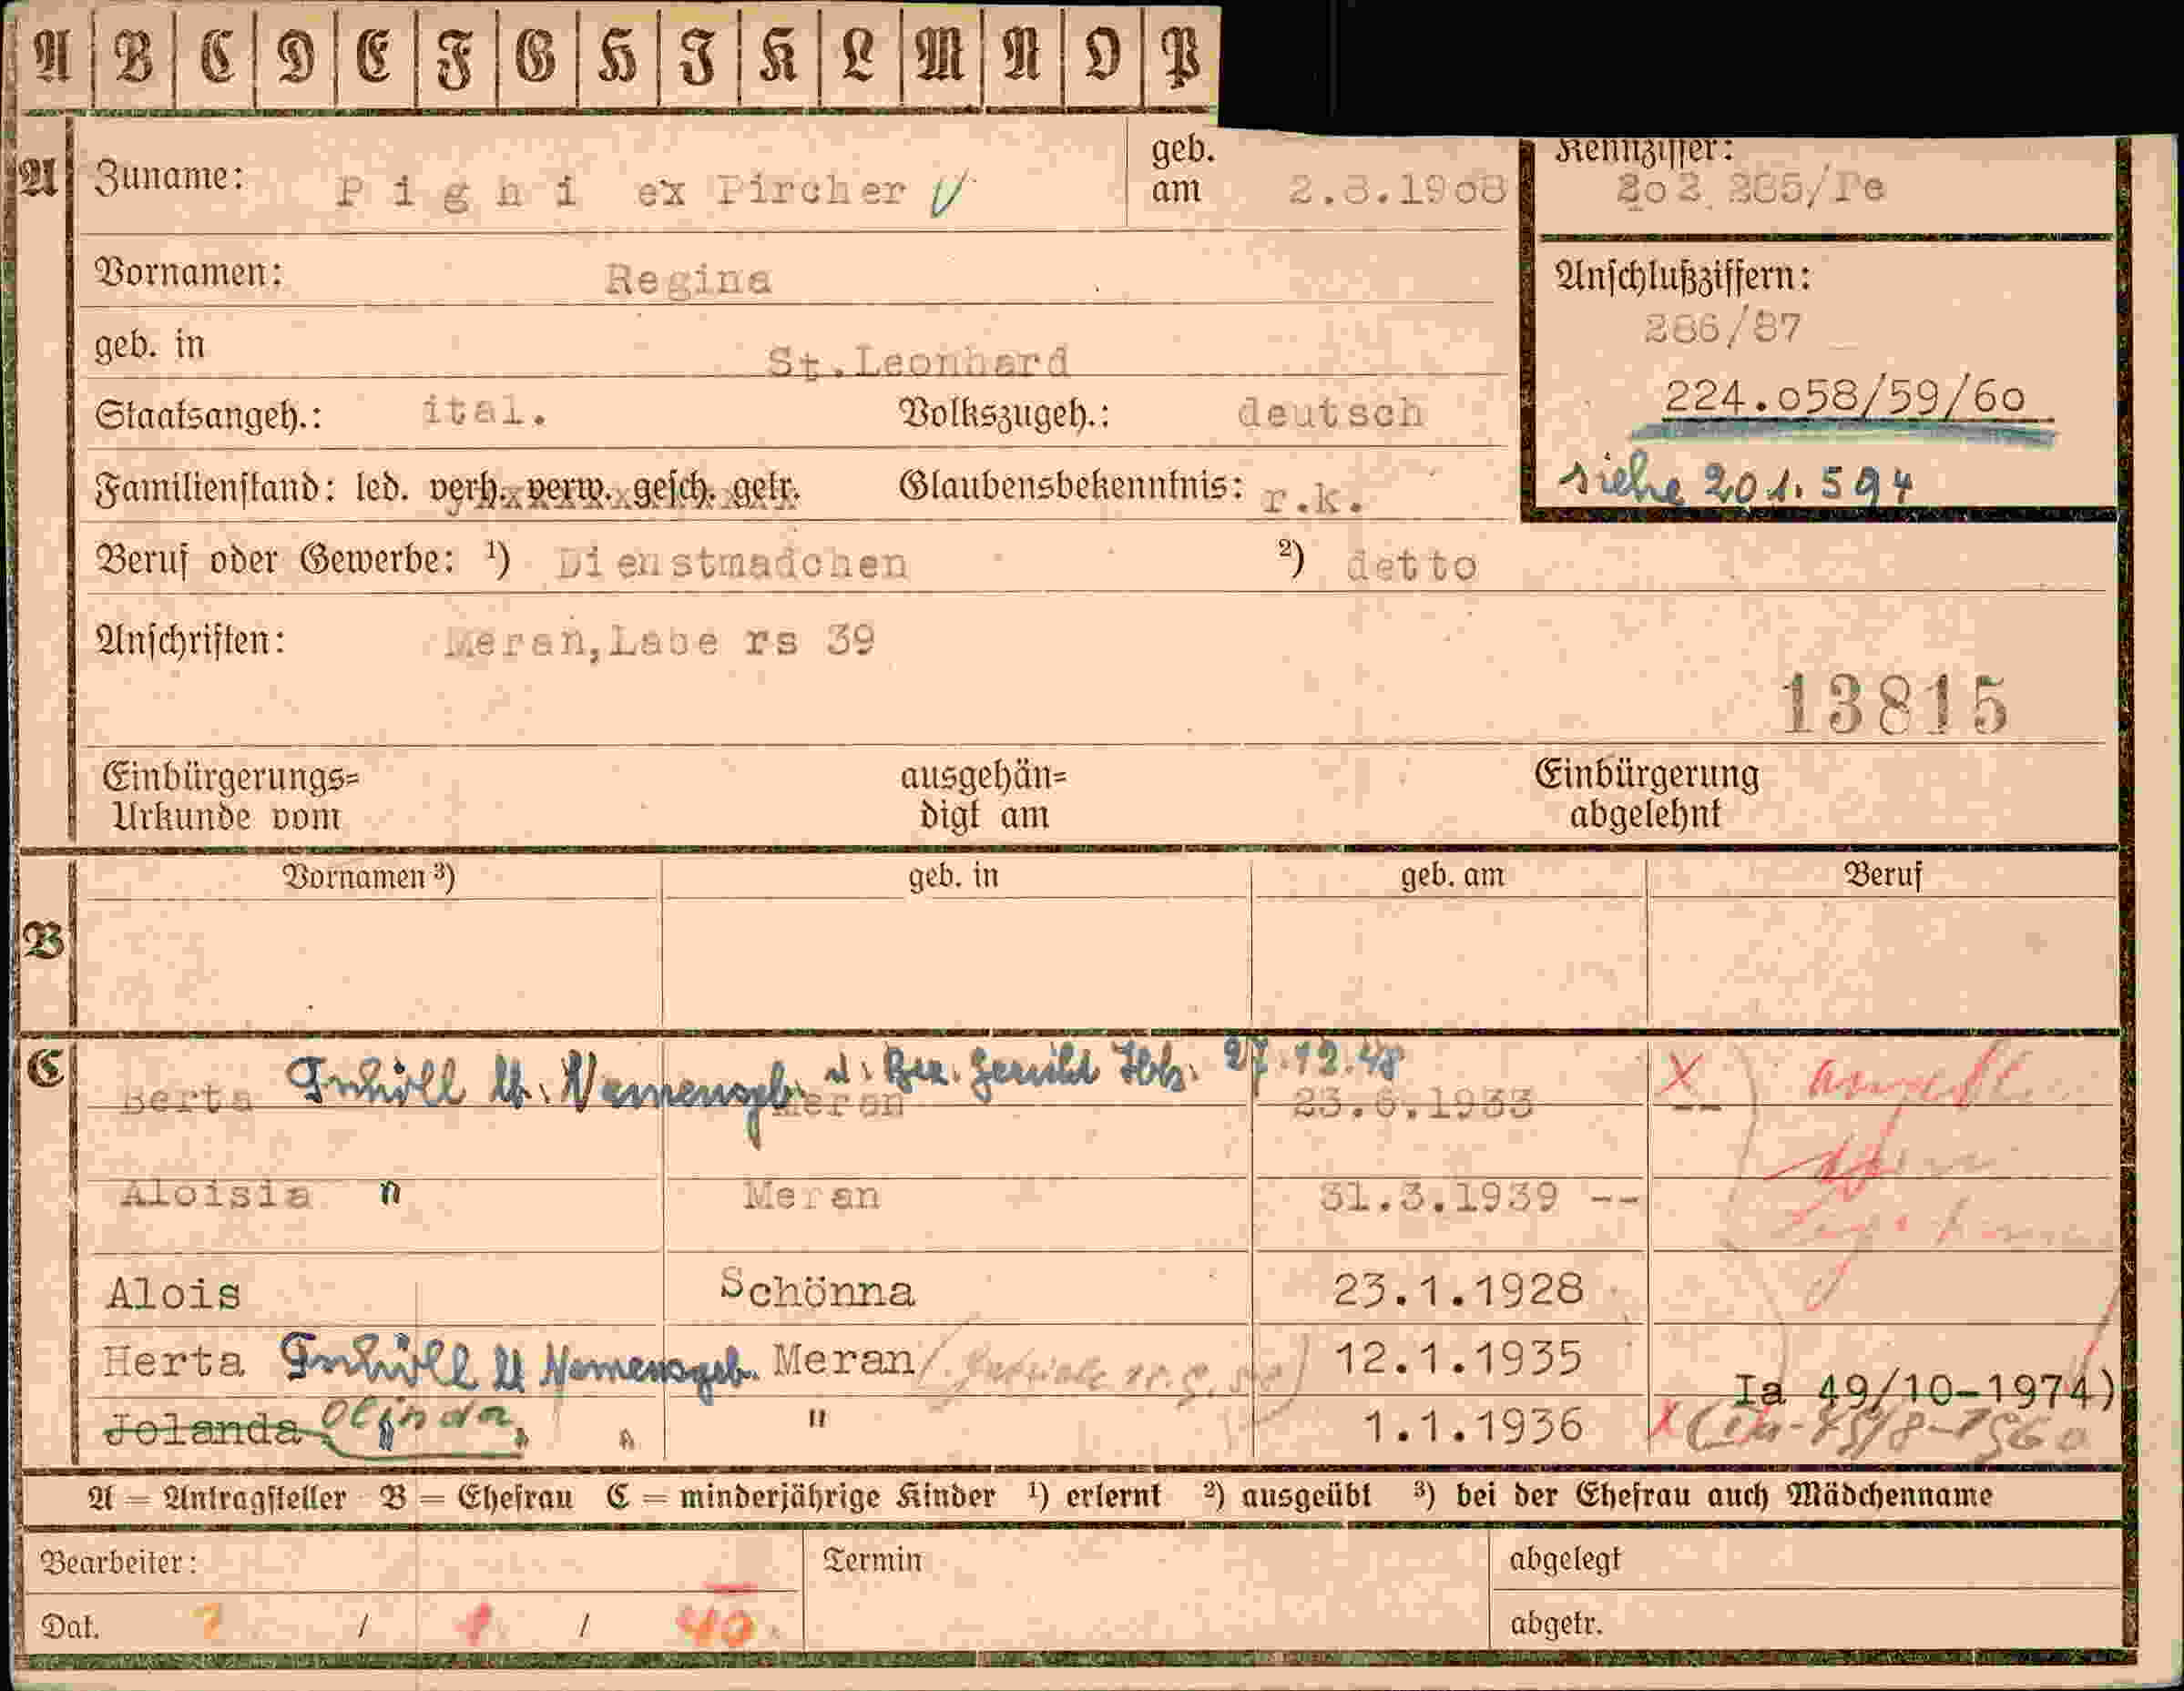 A B C D E F G H I K L M N O P
A
Zuname: Pighi ex Pircher
geb. am 2.8.1908
Kennziffer:
202.285/Pe
Vornamen: Regina
Anschlußziffern:
286/87
geb. in St.Leonhard
224.058/59/60
Staatsangeh.: ital. Volkszugeh.: deutsch
Familienstand: led. verh. verw. gesch. getr. Glaubensbekenntnis: r.k.
siehe 201.594
Beruf oder Gewerbe: ¹) Dienstmadchen ²) detto
Anschriften: Meran, Labe rs 39
13815
Einbürgerungs= Urkunde vom
ausgehän= digt am
Einbürgerung abgelehnt
B
Vornamen ³) geb. in geb. am Beruf
C
Berta Meran 23.6.1933 --
27.12.48
Aloisia " Meran 31.3.1939 --
Alois Schönna 23.1.1928
Herta Meran 12.1.1935
Ia 49/10-1974)
Jolanda Olinda " " 1.1.1936
A = Antragsteller B = Ehefrau C = minderjährige Kinder ¹) erlernt ²) ausgeübt ³) bei der Ehefrau auch Mädchenname
Bearbeiter: Termin abgelegt
Dat. / 1 / 40 abgetr.